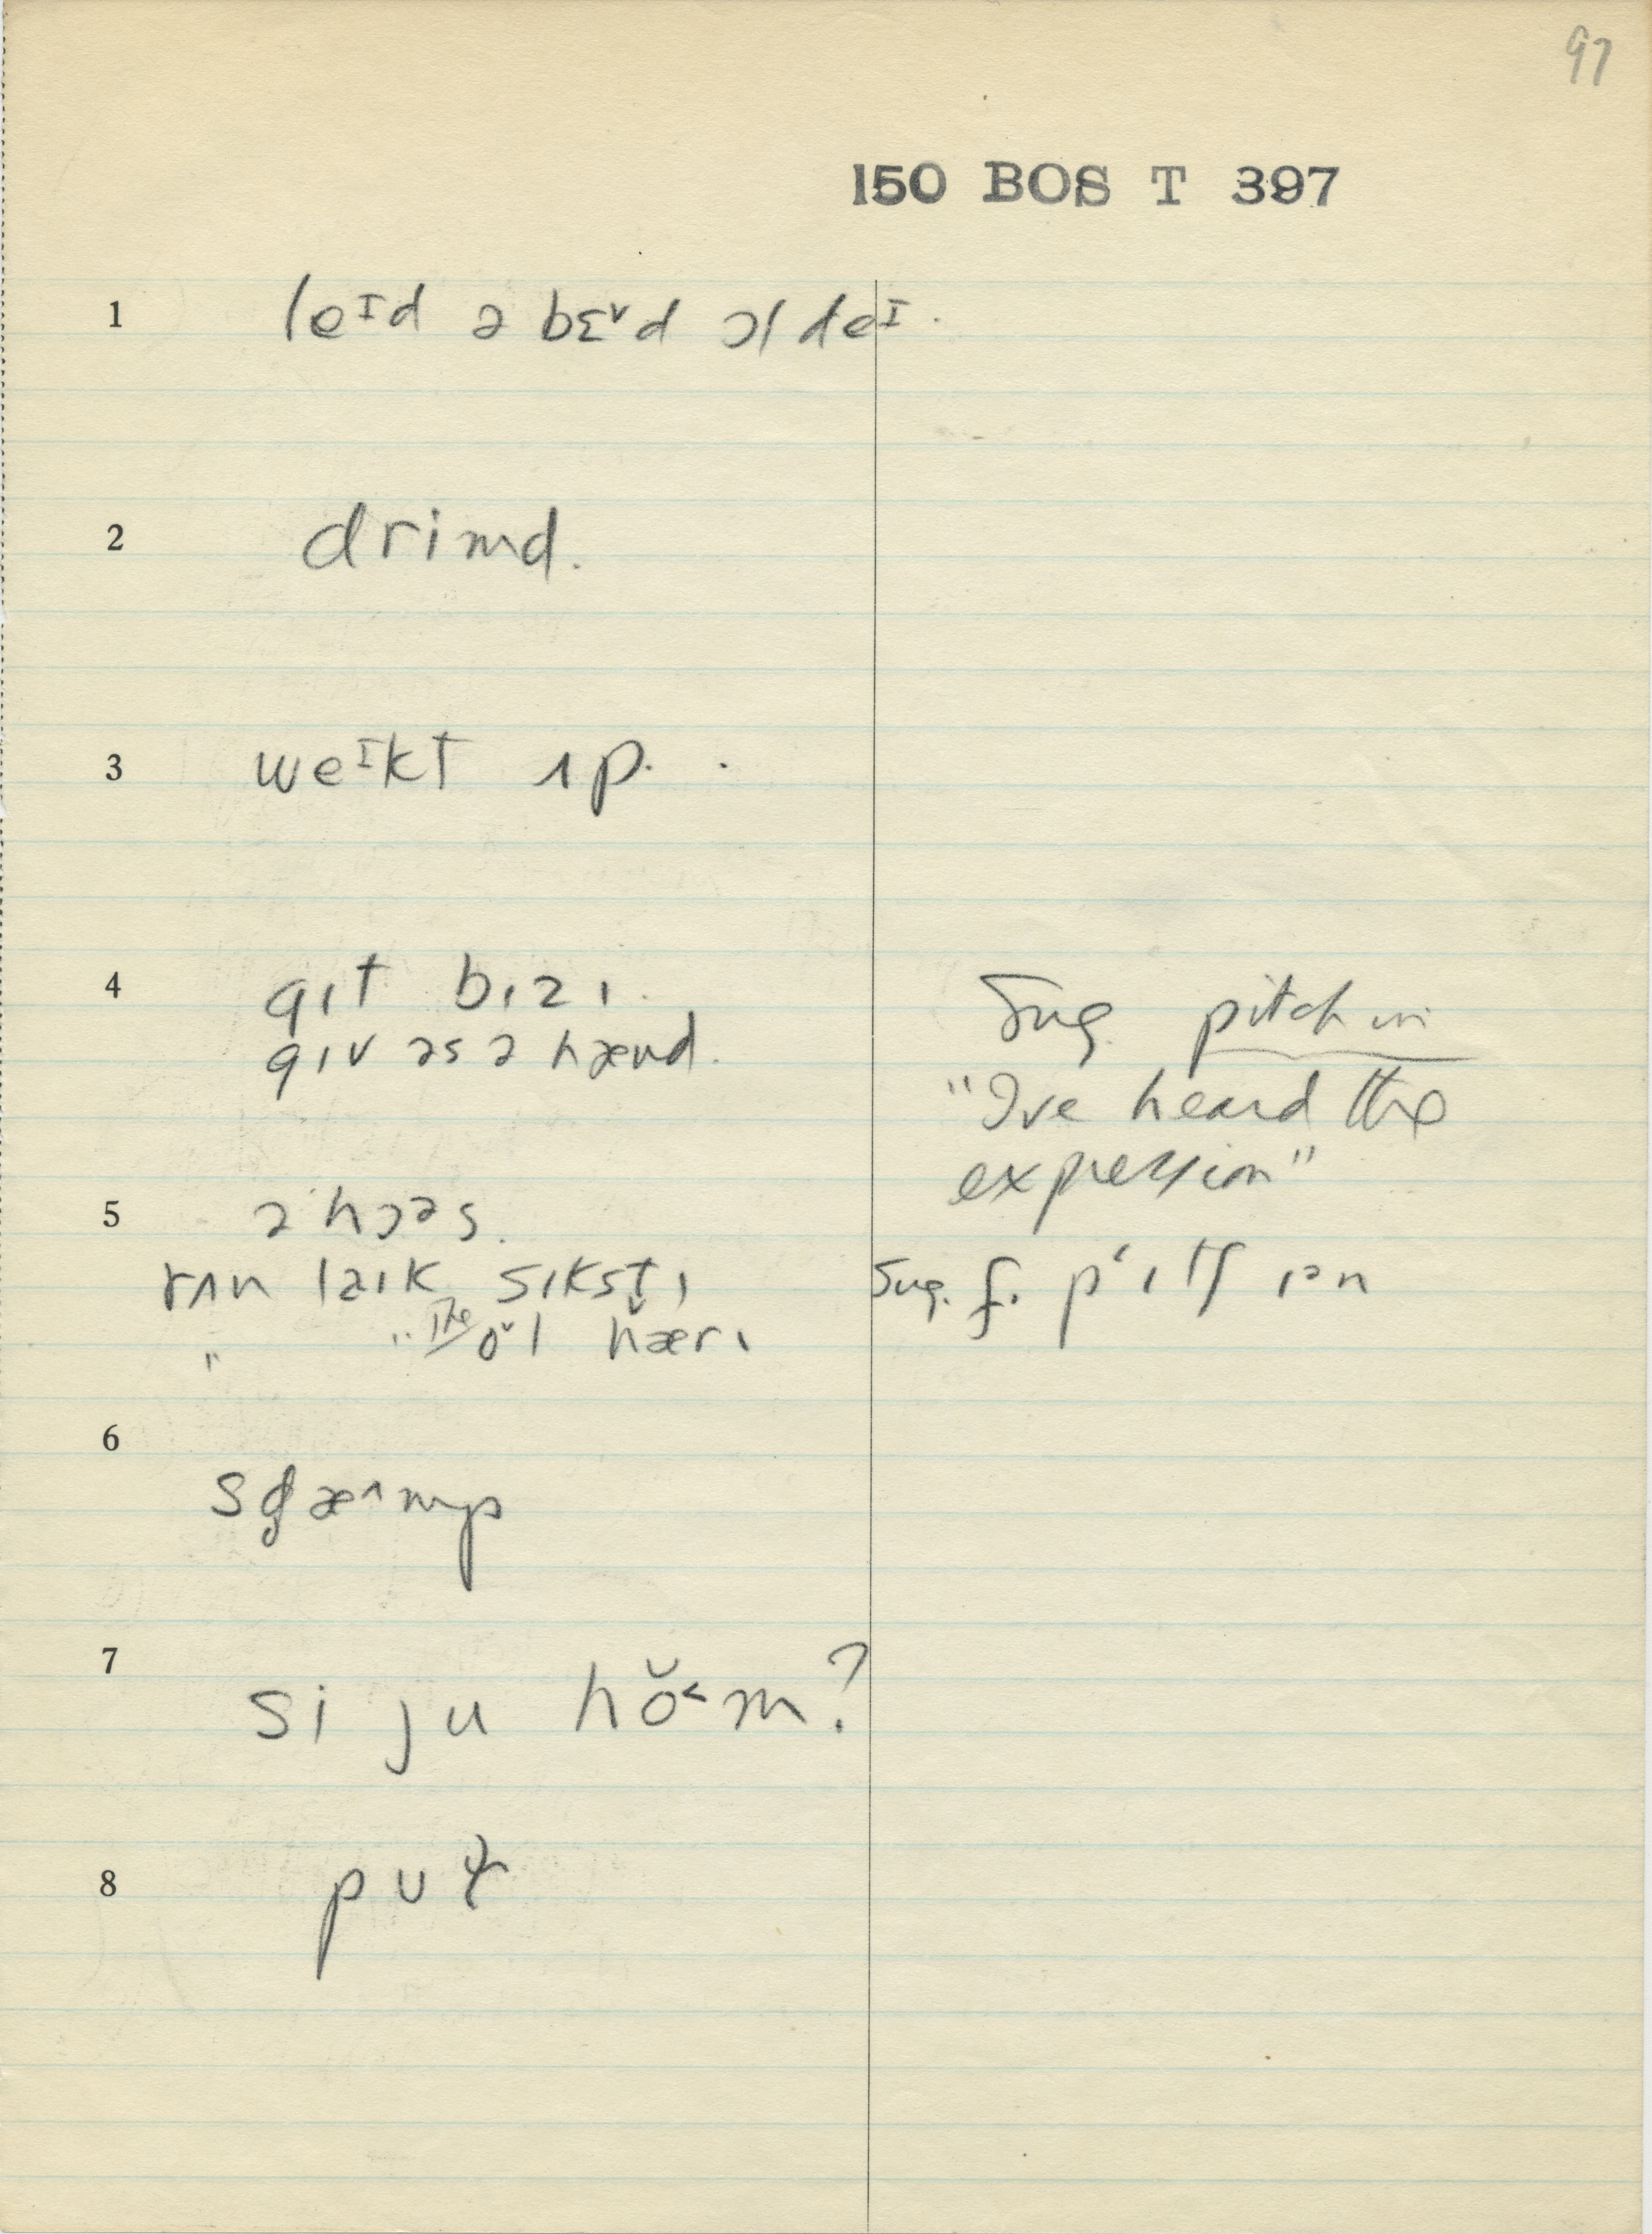 97
150 BOS T 397
1 leᴵd ə bɛᵛd ɔl deᴵ.
2 drimd.
3 weᴵkt ʌp.
4 gɪt bɪzɪ.
gɪv əs ə hænd.
Sug. pitch in
"I've heard the
expression"
5 ə hɔəs.
rʌn laɪk sɪkstɪ
" " the o̬l hærɪ
Sug. f. pʻɪtʃ ɪən
6
7 si ju hŏ˂m?
8